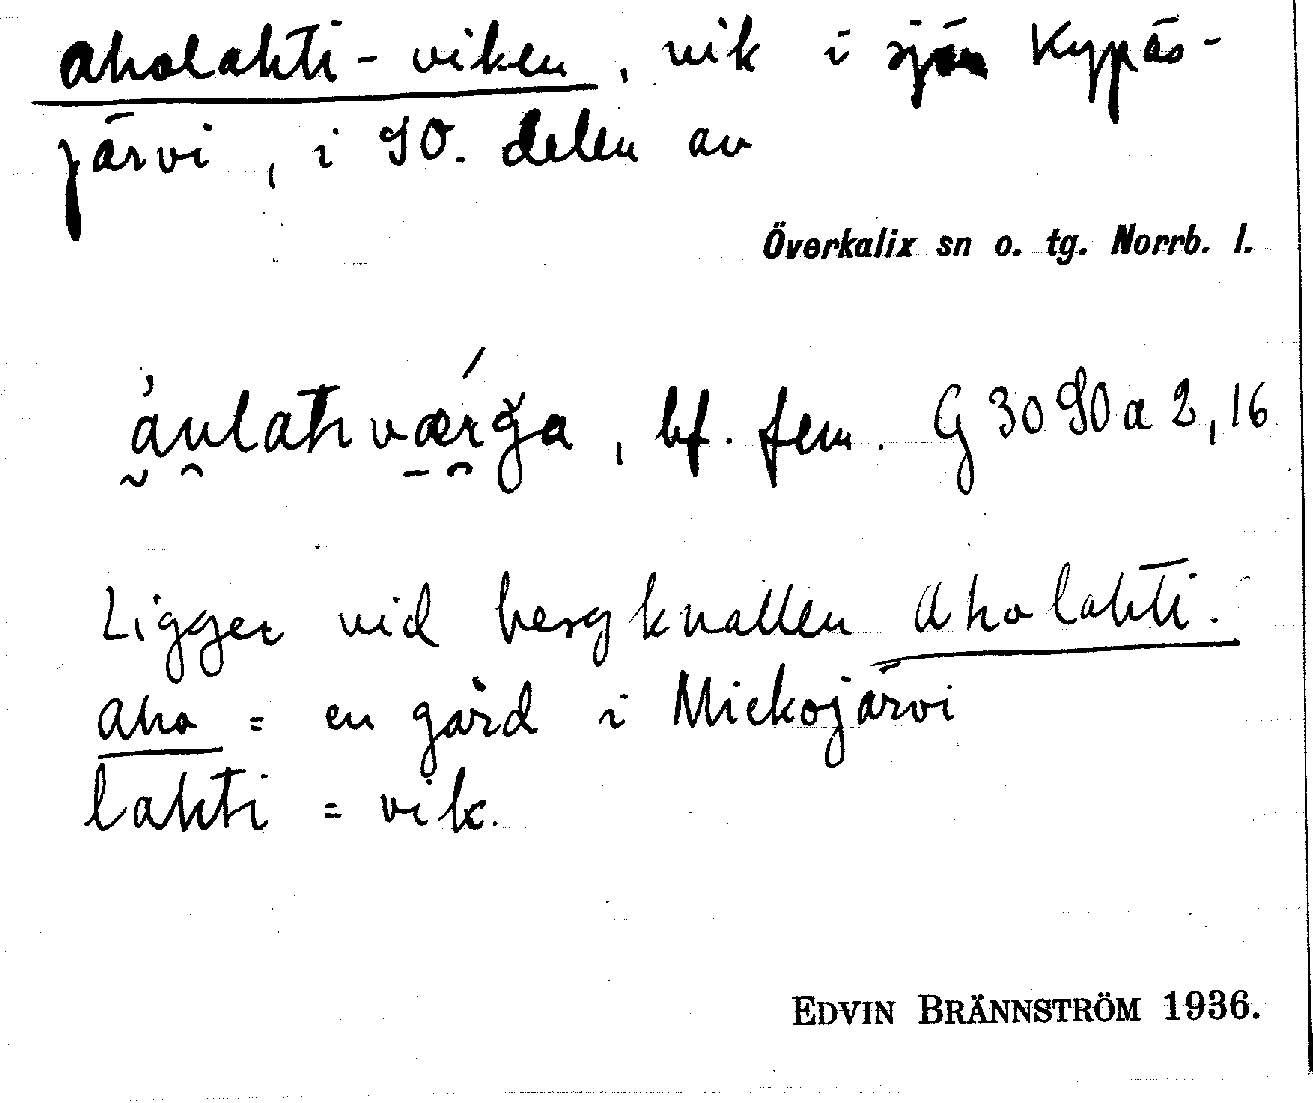 Aholahti-viken, vik i sjön Kypäs-
järvi, i SO. delen av
Överkalix sn o. tg. Norrb. l.
bf. fem. G 30 SO a 2, 16
Ligger vid bergknallen Aholahti.
Aho = en gård i Miekojärvi
lahti = vik.
EDVIN BRÄNNSTRÖM 1936.